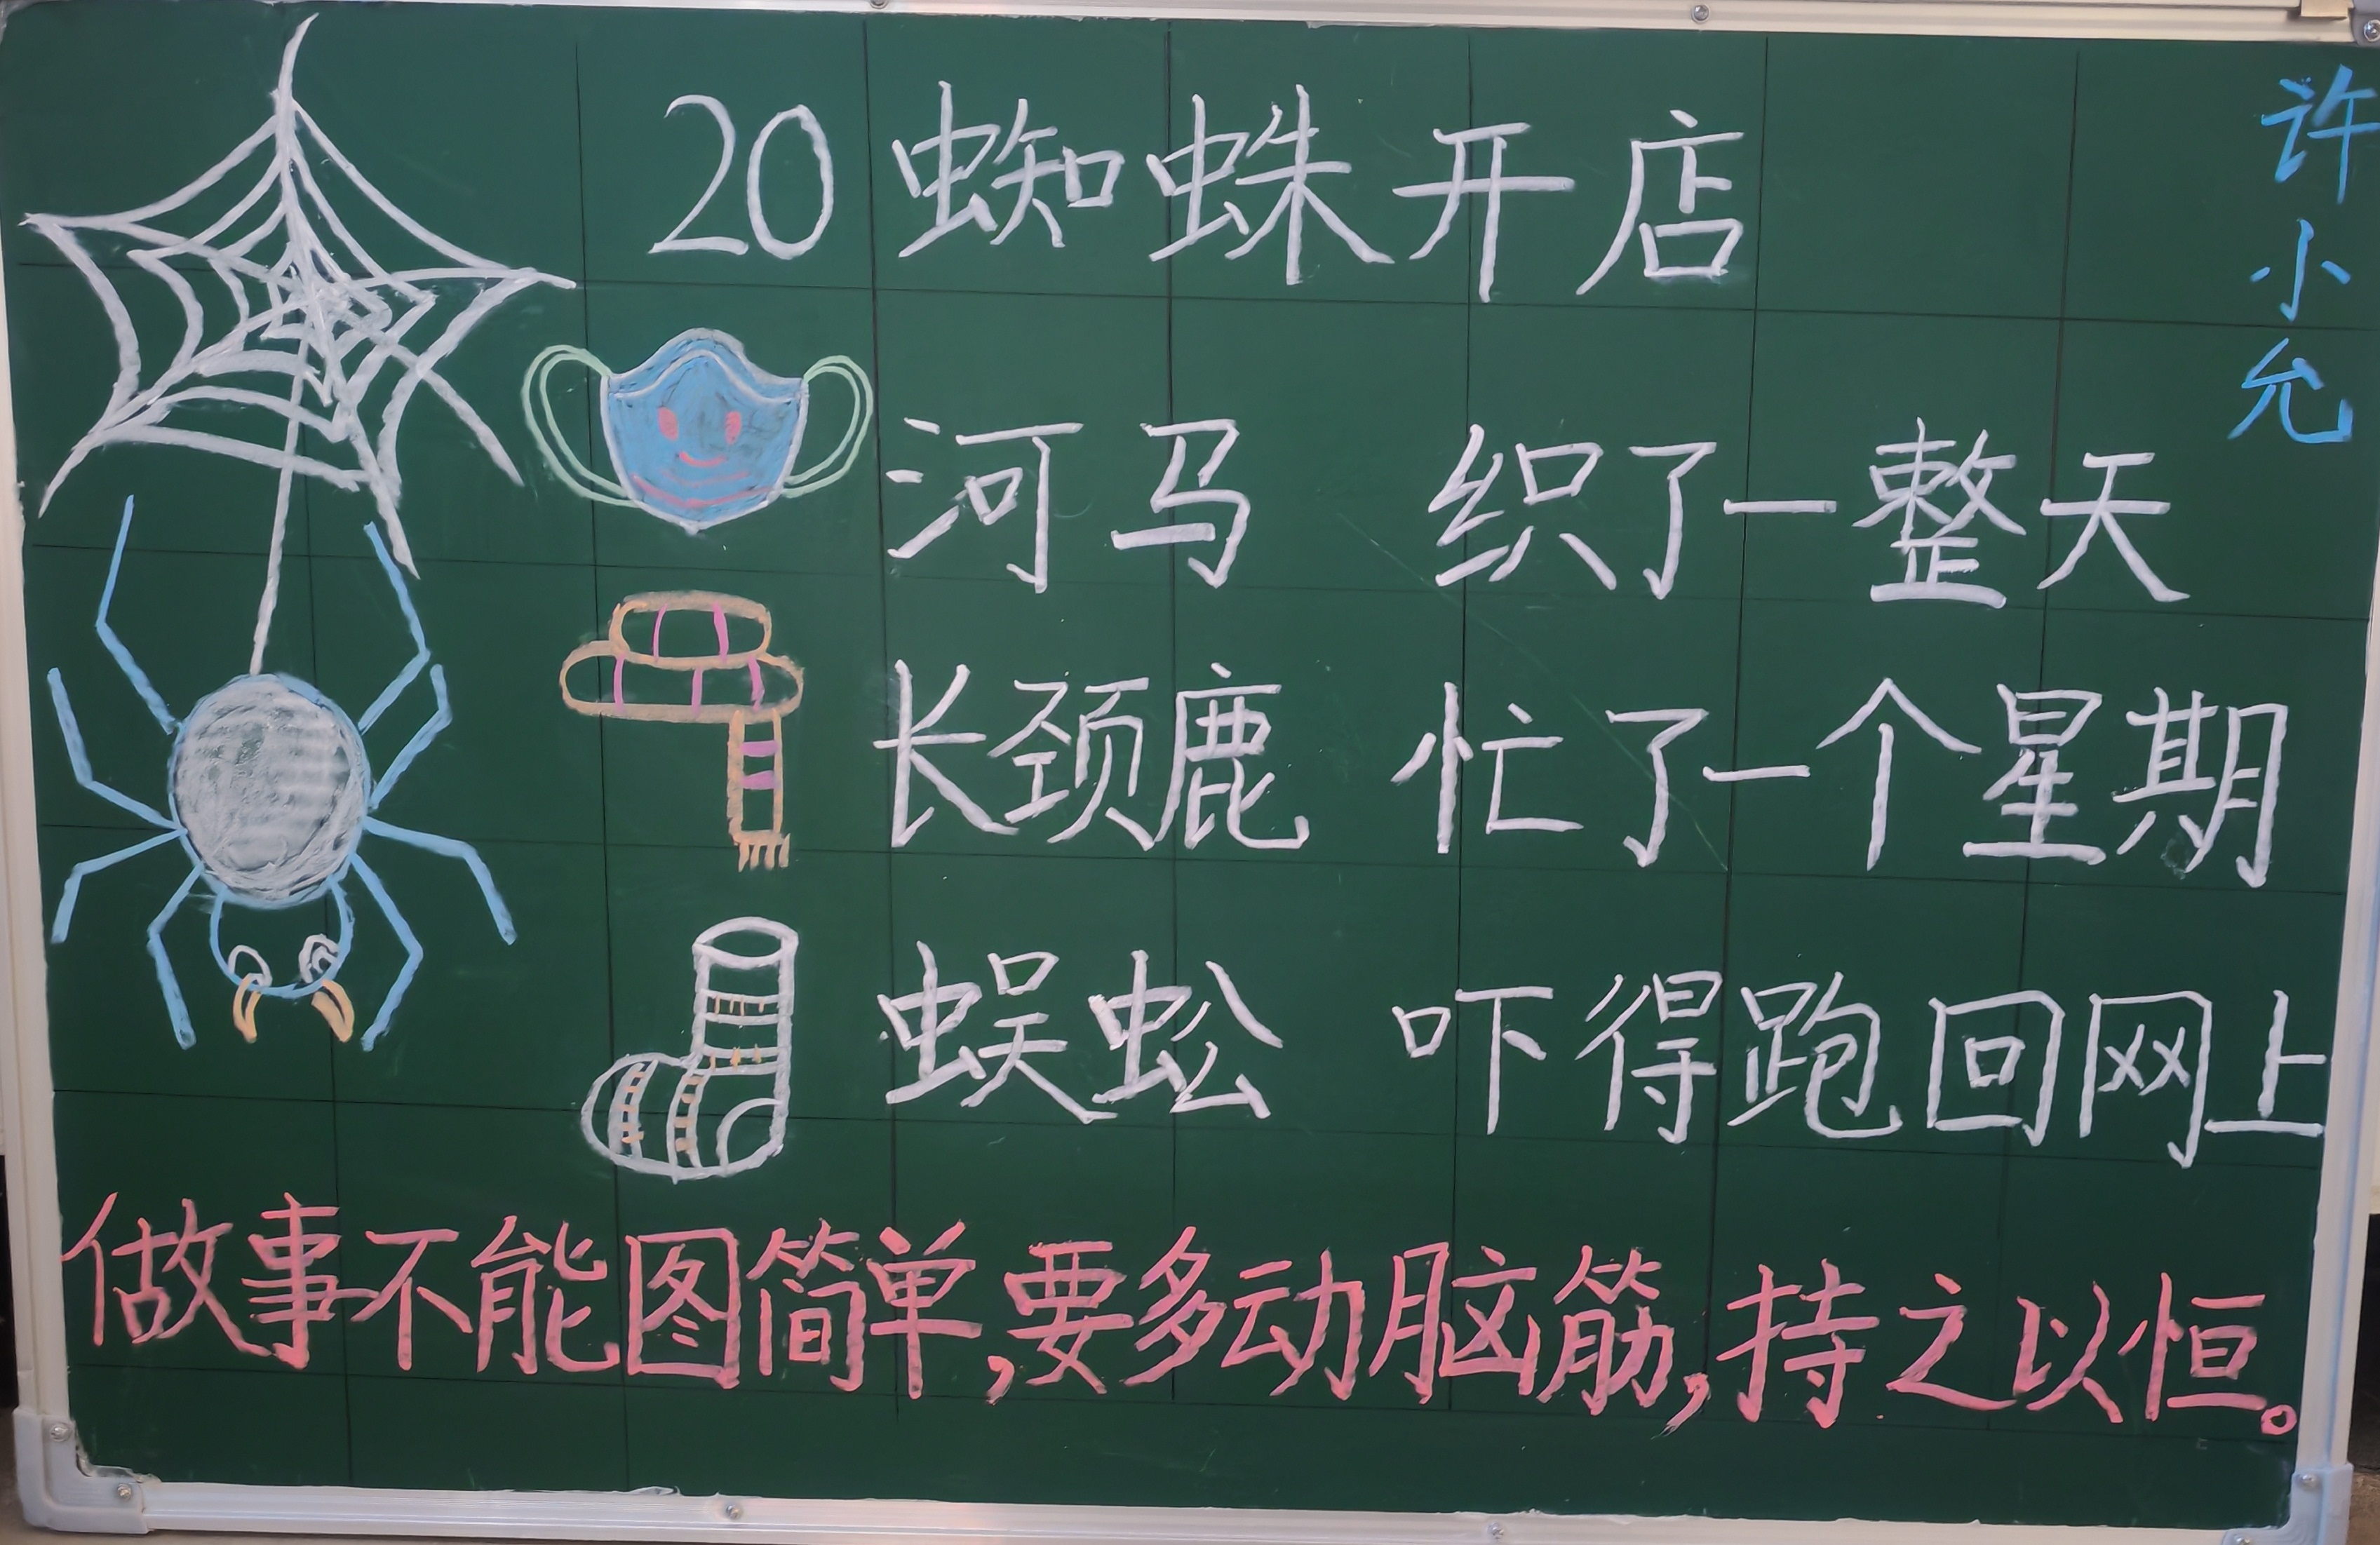 20 蜘蛛开店
许小允
河马 织了一整天
长颈鹿 忙了一个星期
蜈蚣 吓得跑回网上
做事不能图简单,要多动脑筋,持之以恒。